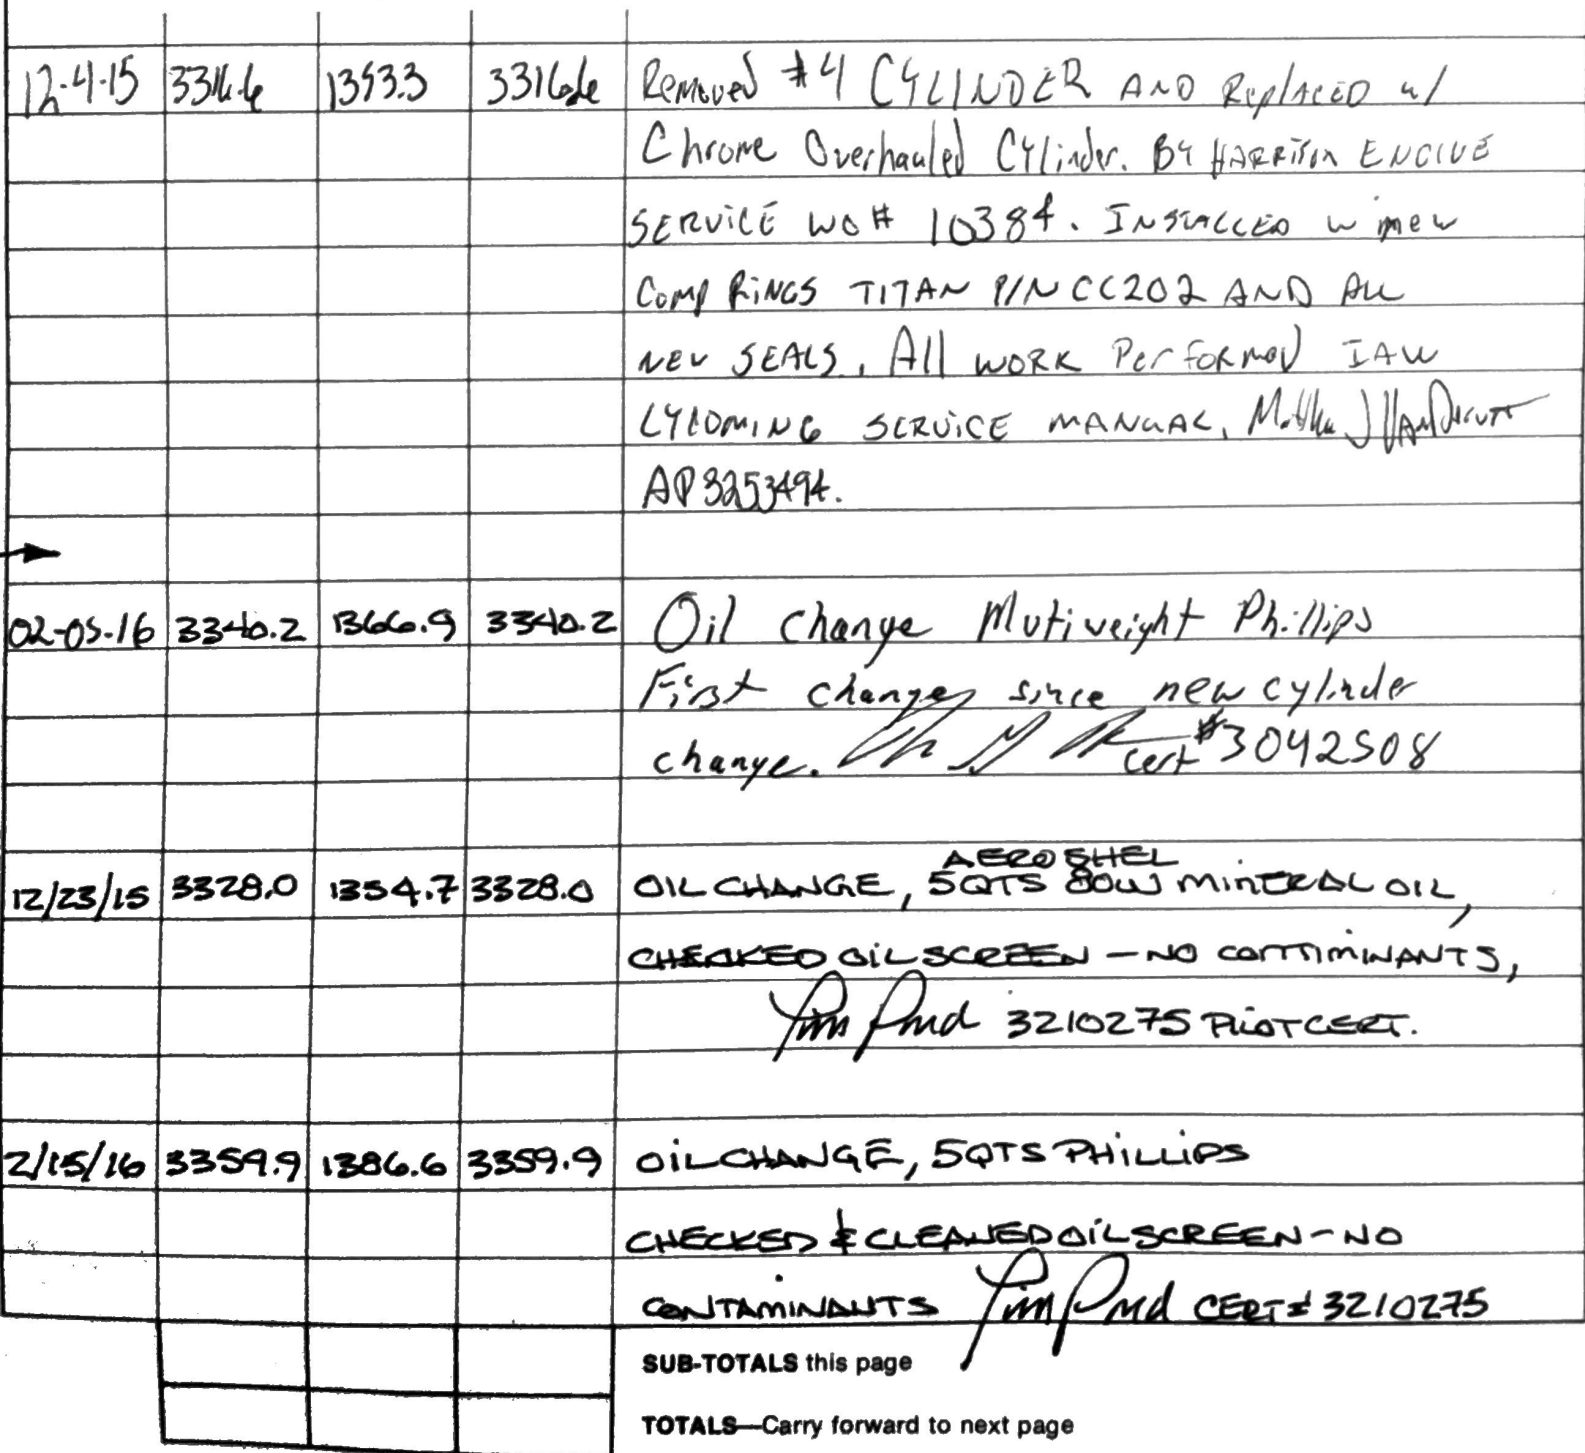 12-4-15 3316.6 1343.3 3316.6 Removed #4 CYLINDER AND Replaced w/
Chrome Overhauled Cylinder. By HARRISON ENGINE
SERVICE WO# 10384. INSTALLED w new
COMP RINGS TITAN P/N CC202 AND ALL
NEW SEALS. All WORK Performed IAW
LYCOMING SERVICE MANUAL.
AP3253494.
02-05-16 3340.2 1366.9 3340.2 Oil Change Mutiweight Phillips
First change since new cylinder
change. cert #3042508
12/23/15 3328.0 1354.7 3328.0 OIL CHANGE, 5QTS AEROSHEL 80W MINERAL OIL,
CHECKED OIL SCREEN - NO CONTIMINANTS,
3210275 PILOT CERT.
2/15/16 3359.9 1386.6 3359.9 OIL CHANGE, 5QTS PHILLIPS
CHECKED & CLEANED OIL SCREEN - NO
CONTAMINANTS CERT# 3210275
SUB-TOTALS this page
TOTALS—Carry forward to next page